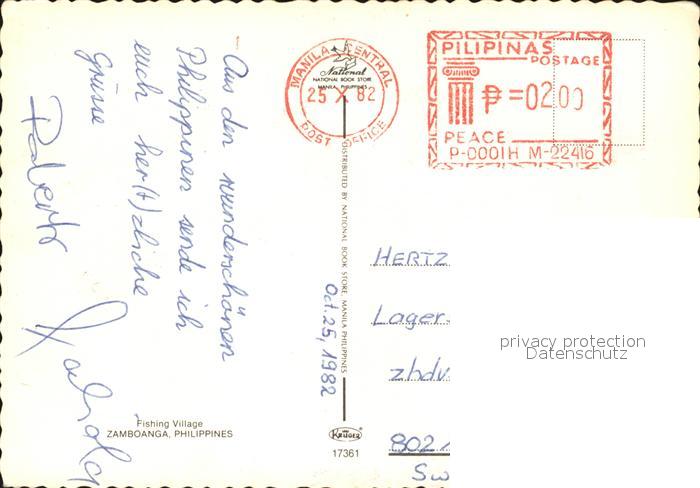 Aus den wunderschönen
Philippinen sende ich
euch her(t)zliche
Grüsse
Fishing Village
ZAMBOANGA, PHILIPPINES
MANILA CENTRAL
POST OFFICE
25 X 82
National
NATIONAL BOOK STORE
MANILA, PHILIPPINES
DISTRIBUTED BY NATIONAL BOOK STORE, MANILA PHILIPPINES
Oct. 25, 1982
KRUGER
17361
PILIPINAS
POSTAGE
₱=02.00
PEACE
P-0001H M-22416
HERTZ
Lager-
zhdv.
802
Sw
privacy protection
Datenschutz